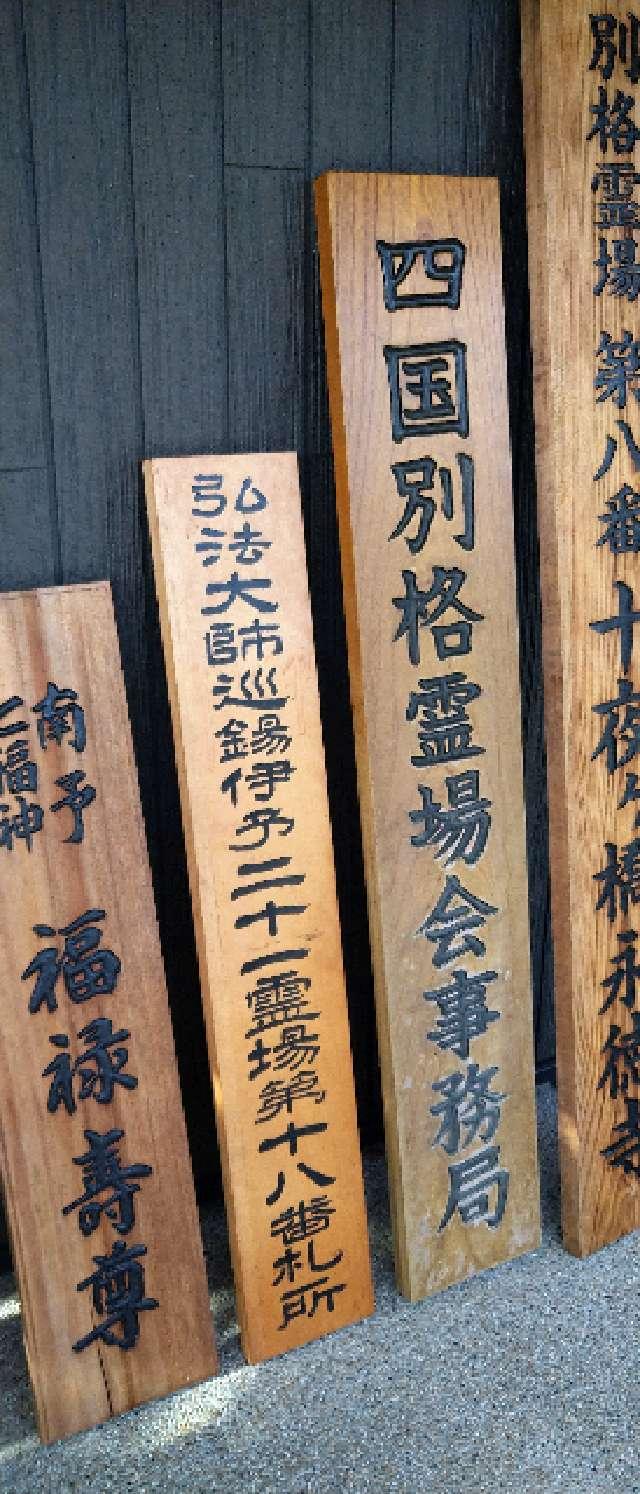 別格霊場 第八番 十夜ケ橋 永徳寺
四国別格霊場会事務局
弘法大師巡錫伊予二十一霊場第十八番札所
南予
七福神
福禄寿尊